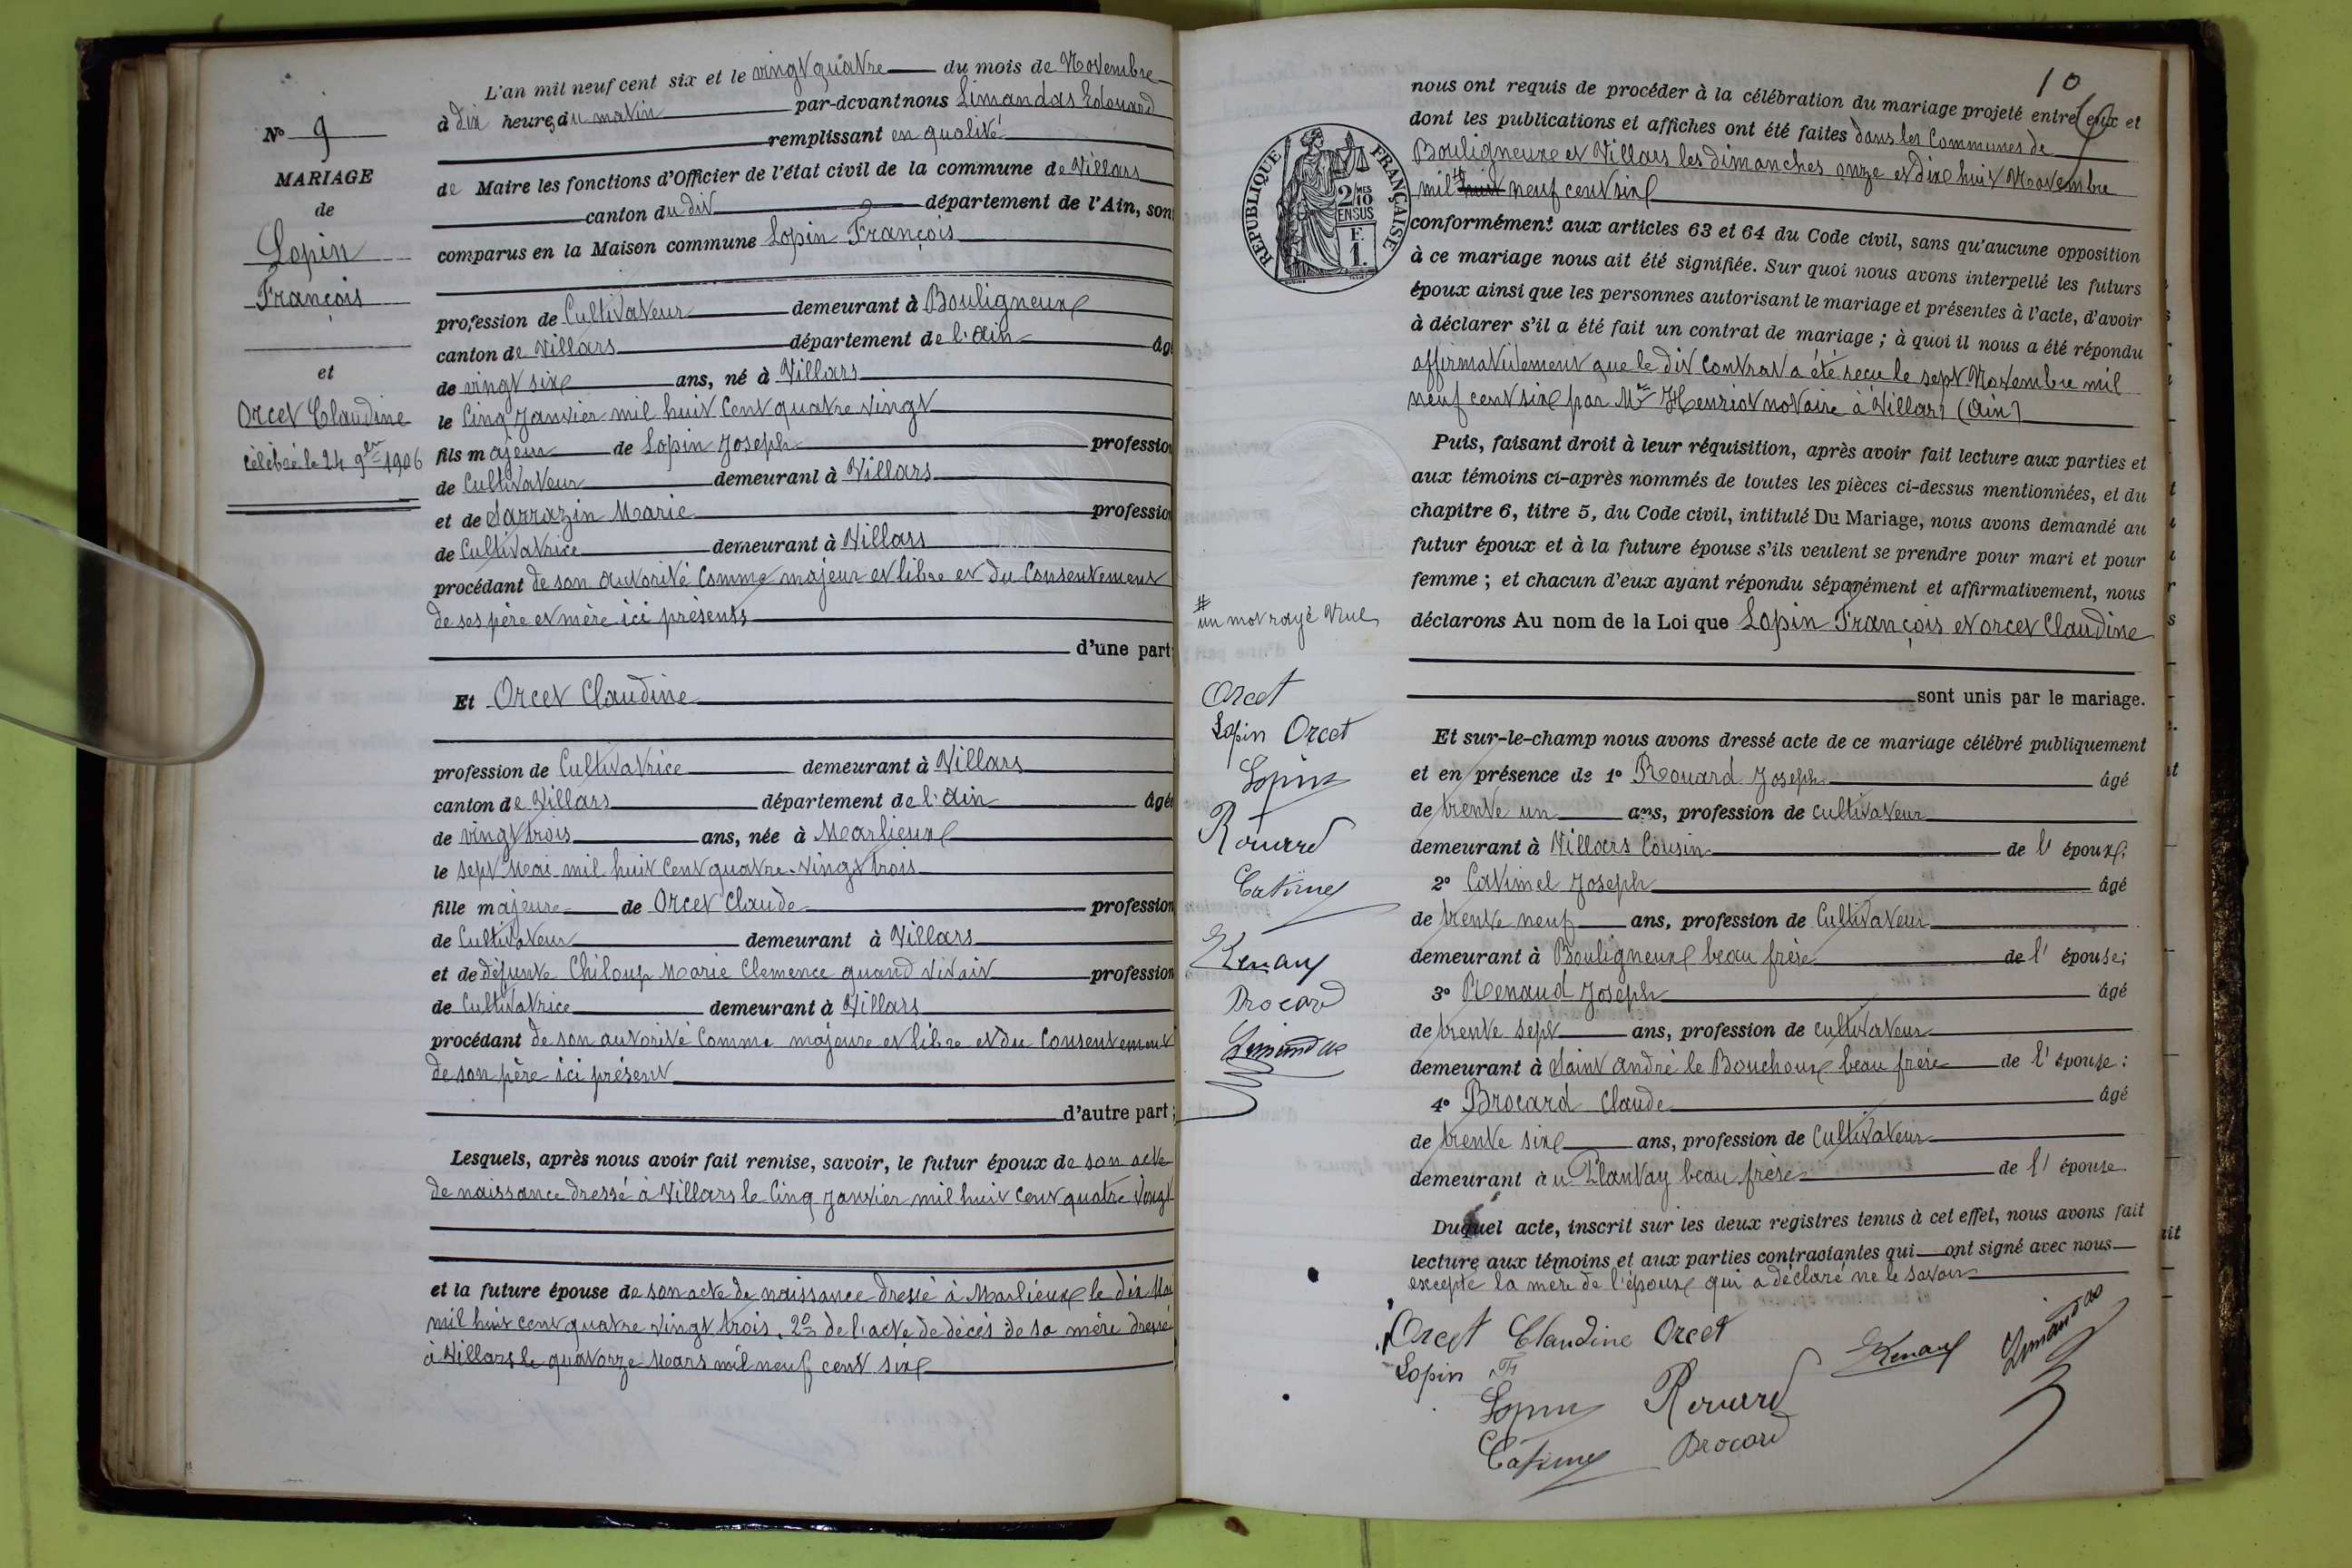 No 9
MARIAGE
de
Lopin
François
et
Orcet Claudine
célébré le 24 9bre 1906
L'an mil neuf cent six et le vingt quatre du mois de Novembre
à dix heures du matin par-devant nous Limandas Edouard
remplissant en qualité
de Maire les fonctions d'Officier de l'état civil de la commune de Villars
canton du dit département de l'Ain, sont
comparus en la Maison commune Lopin François
profession de Cultivateur demeurant à Bouligneux
canton de Villars département de l'Ain âgé
de vingt six ans, né à Villars
le Cinq Janvier mil huit cent quatre vingt
fils majeur de Lopin Joseph profession
de Cultivateur demeurant à Villars
et de Sarrazin Marie profession
de Cultivatrice demeurant à Villars
procédant de son autorité comme majeur et libre et du Consentement
de ses père et mère ici présents
d'une part;
Et Orcet Claudine
profession de Cultivatrice demeurant à Villars
canton de Villars département de l'Ain âgée
de vingt trois ans, née à Marlieux
le sept Mai mil huit cent quatre-vingt trois
fille majeure de Orcet Claude profession
de Cultivateur demeurant à Villars
et de défunte Chiloup Marie Clemence quand vivait profession
de Cultivatrice demeurant à Villars
procédant de son autorité Comme majeure et libre et du Consentement
de son père ici présent
d'autre part;
Lesquels, après nous avoir fait remise, savoir, le futur époux de son acte
de naissance dressé à Villars le Cinq Janvier mil huit cent quatre vingt
et la future épouse de son acte de naissance dressé à Marlieux le dix Mai
mil huit cent quatre vingt trois, 2° de l'acte de décès de sa mère dressé
à Villars le quatorze Mars mil neuf cent six
10
nous ont requis de procéder à la célébration du mariage projeté entre eux et
dont les publications et affiches ont été faites dans les Communes de
Bouligneux et Villars les dimanches onze et dix huit Novembre
mil # huit neuf cent six
REPUBLIQUE FRANÇAISE
2/10 MES
EN SUS
F.
1.
conformément aux articles 63 et 64 du Code civil, sans qu'aucune opposition
à ce mariage nous ait été signifiée. Sur quoi nous avons interpellé les futurs
époux ainsi que les personnes autorisant le mariage et présentes à l'acte, d'avoir
à déclarer s'il a été fait un contrat de mariage; à quoi il nous a été répondu
affirmativement que le dit Contrat a été reçu le sept Novembre mil
neuf cent six par Me Henriot notaire à Villars (Ain)
Puis, faisant droit à leur réquisition, après avoir fait lecture aux parties et
aux témoins ci-après nommés de toutes les pièces ci-dessus mentionnées, et du
chapitre 6, titre 5, du Code civil, intitulé Du Mariage, nous avons demandé au
futur époux et à la future épouse s'ils veulent se prendre pour mari et pour
femme; et chacun d'eux ayant répondu séparément et affirmativement, nous
déclarons Au nom de la Loi que Lopin François et Orcet Claudine
sont unis par le mariage.
Et sur-le-champ nous avons dressé acte de ce mariage célébré publiquement
et en présence de 1° Rouard Joseph âgé
de trente un ans, profession de cultivateur
demeurant à Villars Cousin de l' époux;
2° Catimel Joseph âgé
de trente neuf ans, profession de Cultivateur
demeurant à Bouligneux beau frère de l' épouse;
3° Renaud Joseph âgé
de trente sept ans, profession de cultivateur
demeurant à Saint André le Bouchoux beau frère de l' épouse;
4° Brocard Claude âgé
de trente six ans, profession de Cultivateur
demeurant au Plantay beau frère de l' épouse.
Duquel acte, inscrit sur les deux registres tenus à cet effet, nous avons fait
lecture aux témoins et aux parties contractantes qui ont signé avec nous
excepté la mère de l'époux qui a déclaré ne le savoir
# un mot rayé nul
Orcet
Lopin Orcet
Lopin
Rouard
Catimel
Renaud
Brocard
Limandas
Orcet Claudine Orcet
Lopin Fs
Lopin Rouard Renaud Limandas
Catimel Brocard